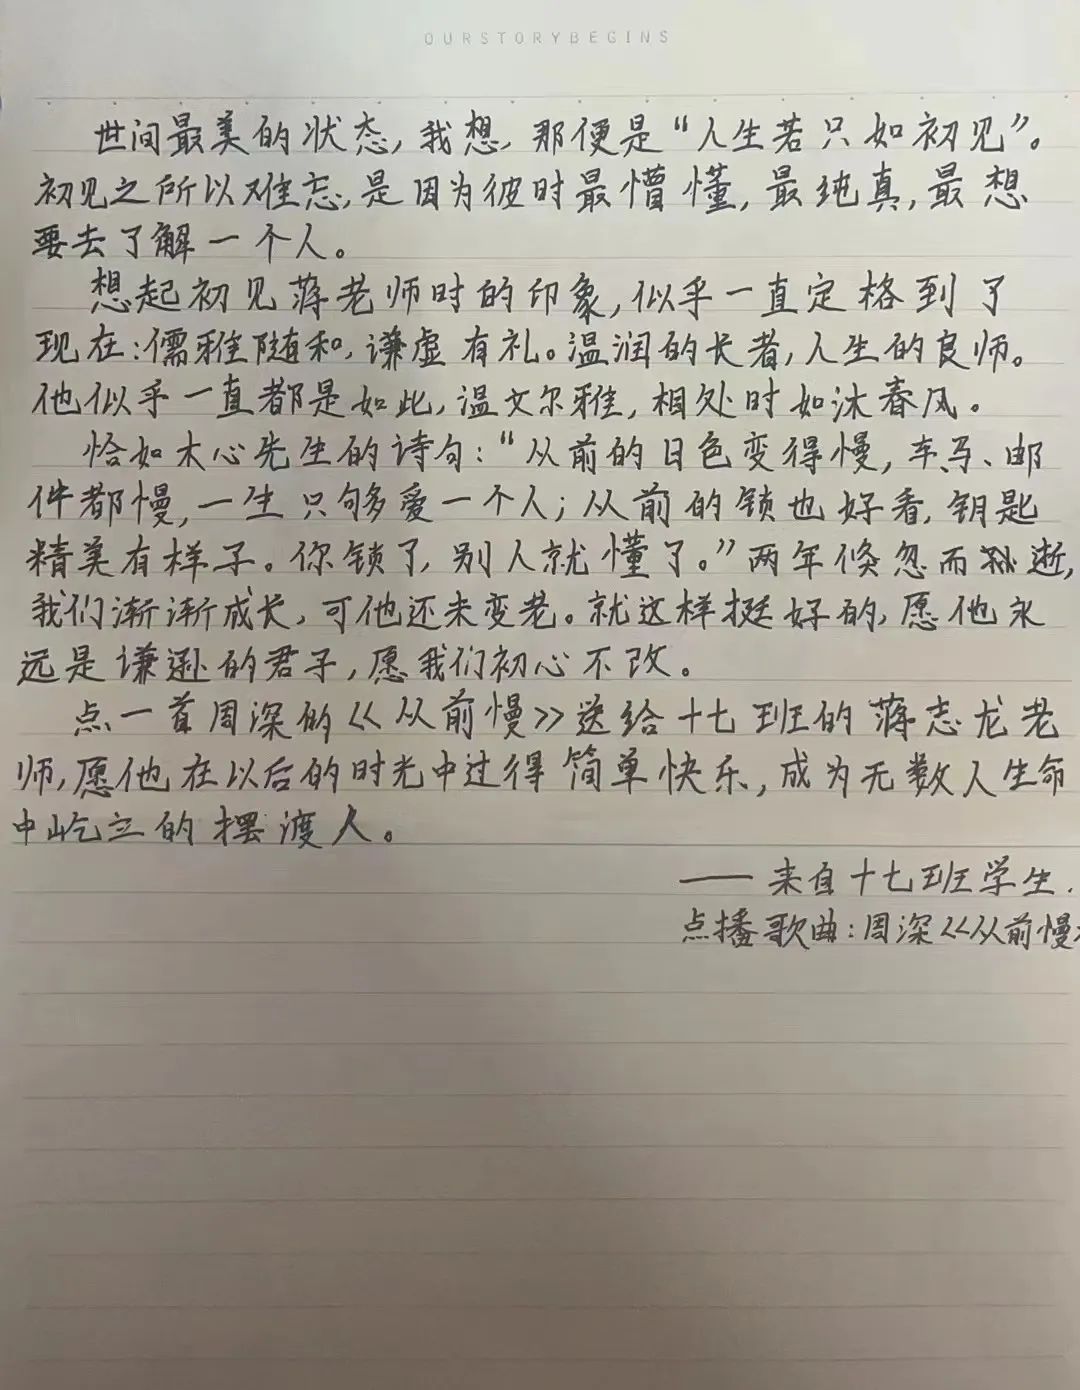 OURSTORYBEGINS
世间最美的状态,我想,那便是“人生若只如初见”。
初见之所以难忘,是因为彼时最懵懂,最纯真,最想
要去了解一个人。
想起初见蒋老师时的印象,似乎一直定格到了
现在:儒雅随和,谦虚有礼。温润的长者,人生的良师。
他似乎一直都是如此,温文尔雅,相处时如沐春风。
恰如木心先生的诗句:“从前的日色变得慢,车、马、邮
件都慢,一生只够爱一个人;从前的锁也好看,钥匙
精美有样子。你锁了,别人就懂了。”两年倏忽而逝,
我们渐渐成长,可他还未变老。就这样挺好的,愿他永
远是谦逊的君子,愿我们初心不改。
点一首周深的《从前慢》送给十七班的蒋志龙老
师,愿他在以后的时光中过得简单快乐,成为无数人生命
中屹立的摆渡人。
——来自十七班学生.
点播歌曲:周深《从前慢